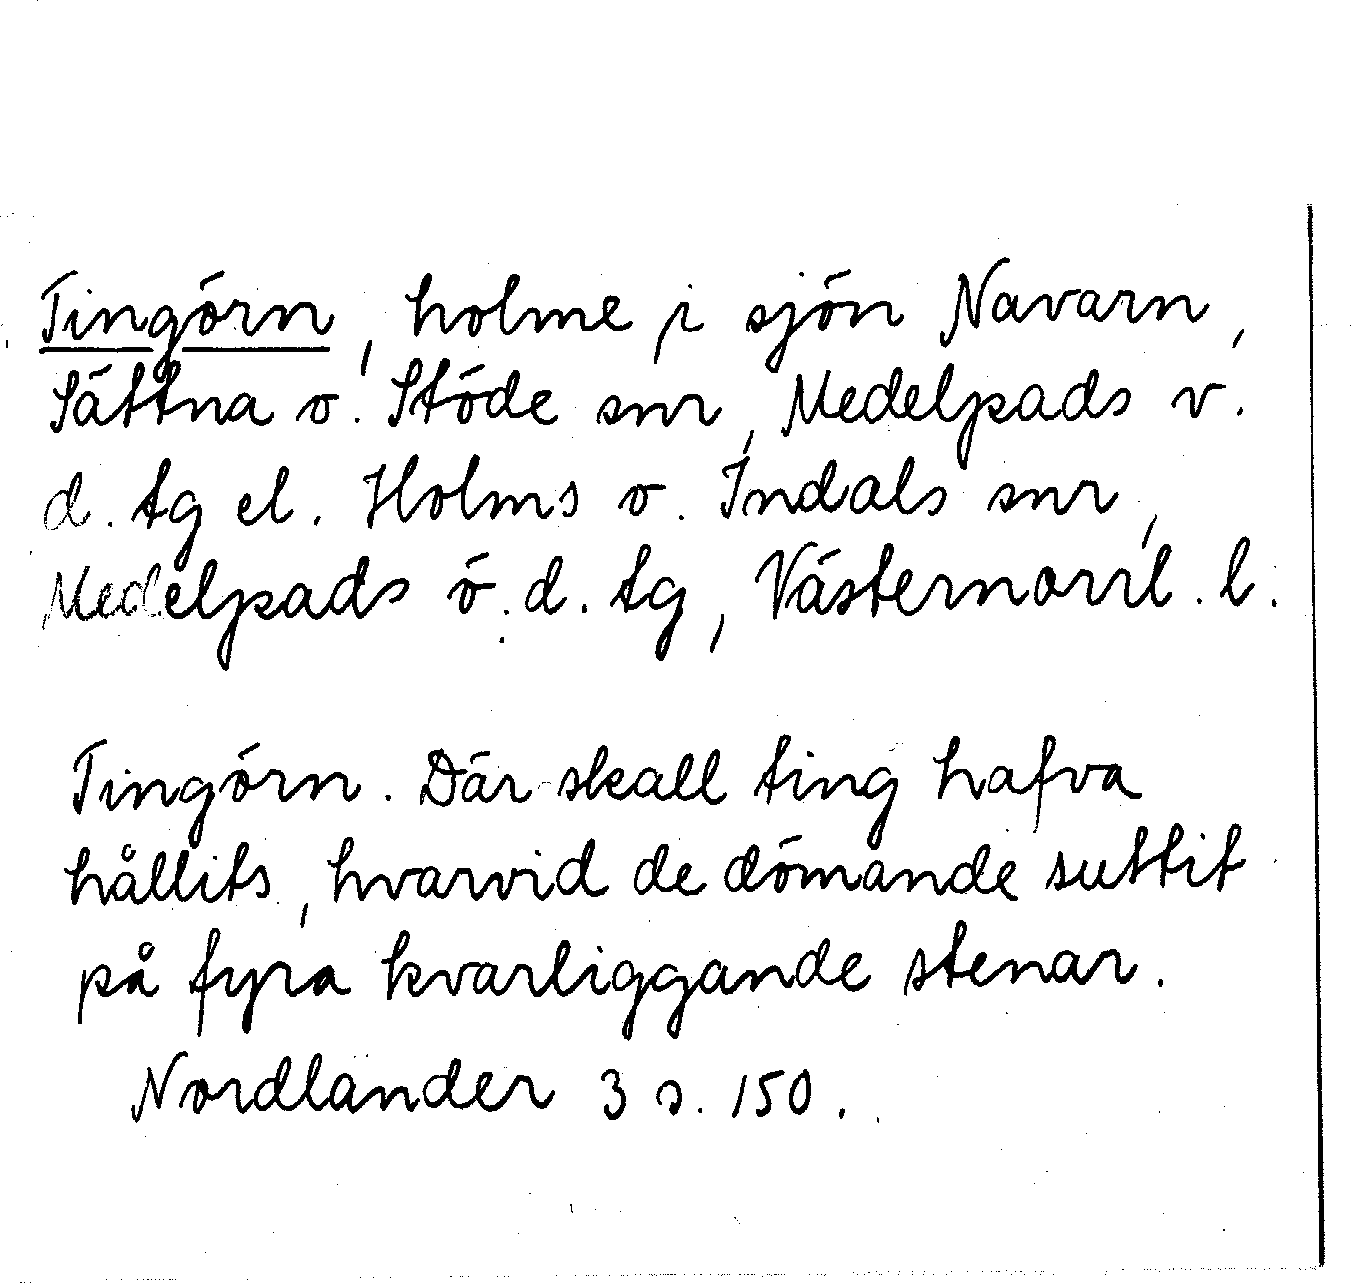 Tingörn, holme i sjön Navarn,
Sättna o. Stöde snr, Medelpads v.
d. tg el. Holms o. Indals snr,
Medelpads ö. d. tg, Västernorrl. l.
Tingörn. Där skall ting hafva
hållits, hvarvid de dömande suttit
på fyra kvarliggande stenar.
Nordlander 3 s. 150.